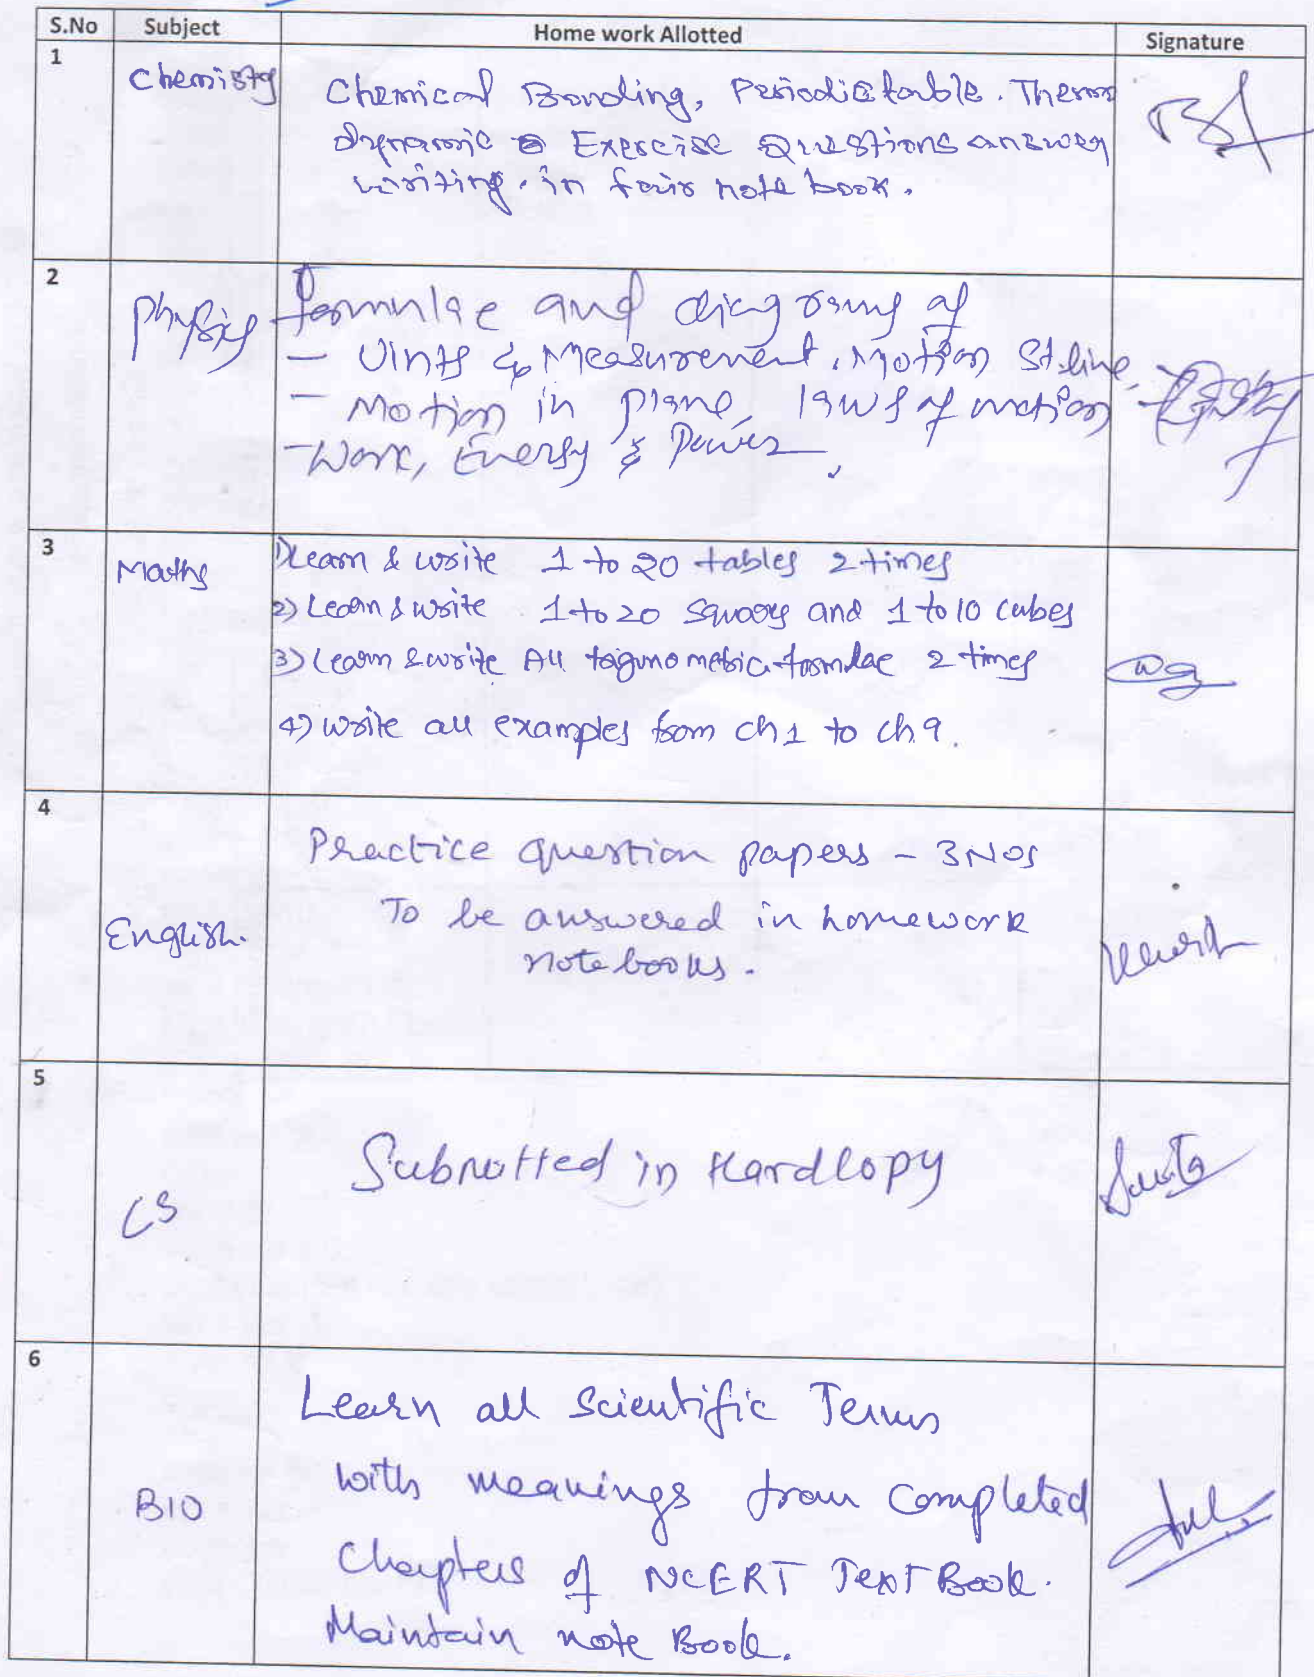 S.No Subject Home work Allotted Signature
1 Chemistry Chemical Bonding, Periodic table. Thermo
dynamic Exercise Questions answer
writing. in fair note book.
2 Physics Formulae and diagrams of
- Uints & Measurement, Motion St. line,
- Motion in plane, laws of motion
- Work, Energy & Power,
3 Maths 1) Learn & write 1 to 20 tables 2 times
2) Learn & write 1 to 20 squares and 1 to 10 cubes
3) Learn & write All trigonometric formulae 2 times
4) write all examples from ch 1 to ch 9.
4
Practice question papers - 3 Nos
English. To be answered in homework
note books.
5
CS Submitted in Hardcopy
6
Learn all Scientific Terms
BIO with meanings from completed
Chapters of NCERT Text Book.
Maintain note Book.